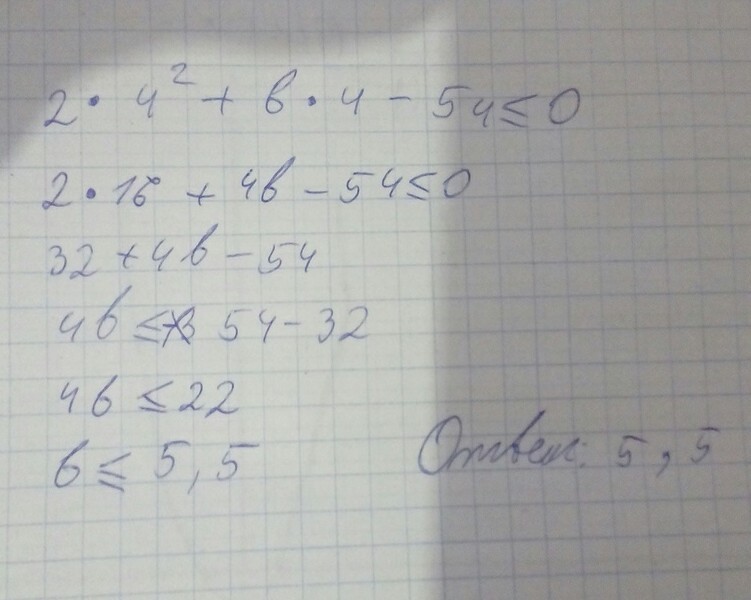 2 · 4² + b · 4 - 54 ≤ 0
2 · 16 + 4b - 54 ≤ 0
32 + 4b - 54
4b ≤ 54 - 32
4b ≤ 22
b ≤ 5,5
Ответ: 5,5